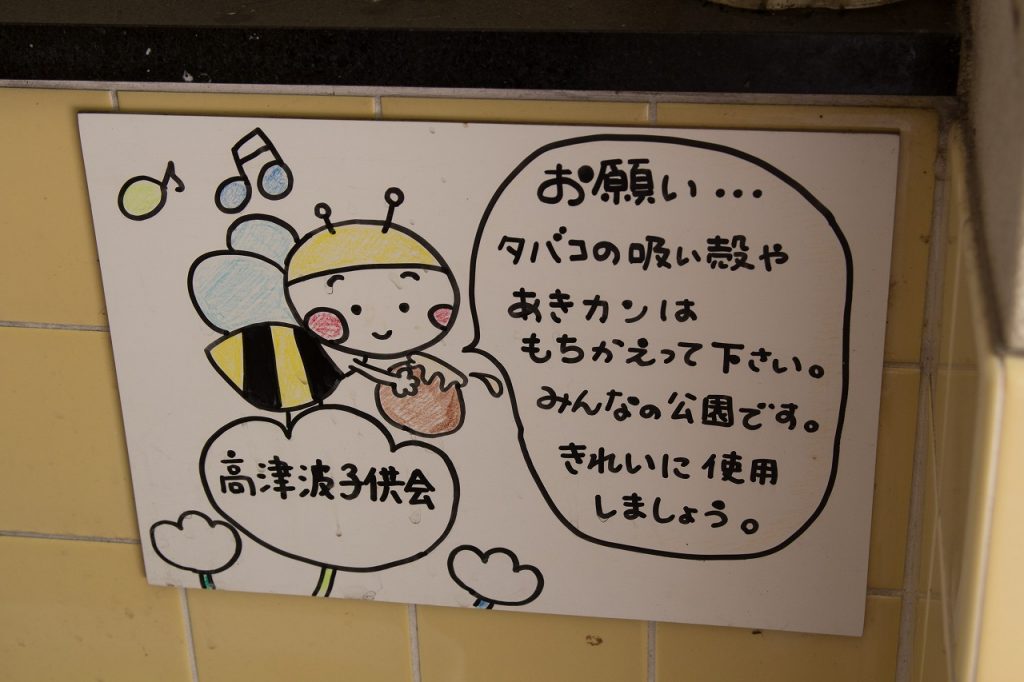 お願い...
タバコの吸い殻や
あきカンは
もちかえって下さい。
みんなの公園です。
きれいに使用
しましょう。
高津波子供会